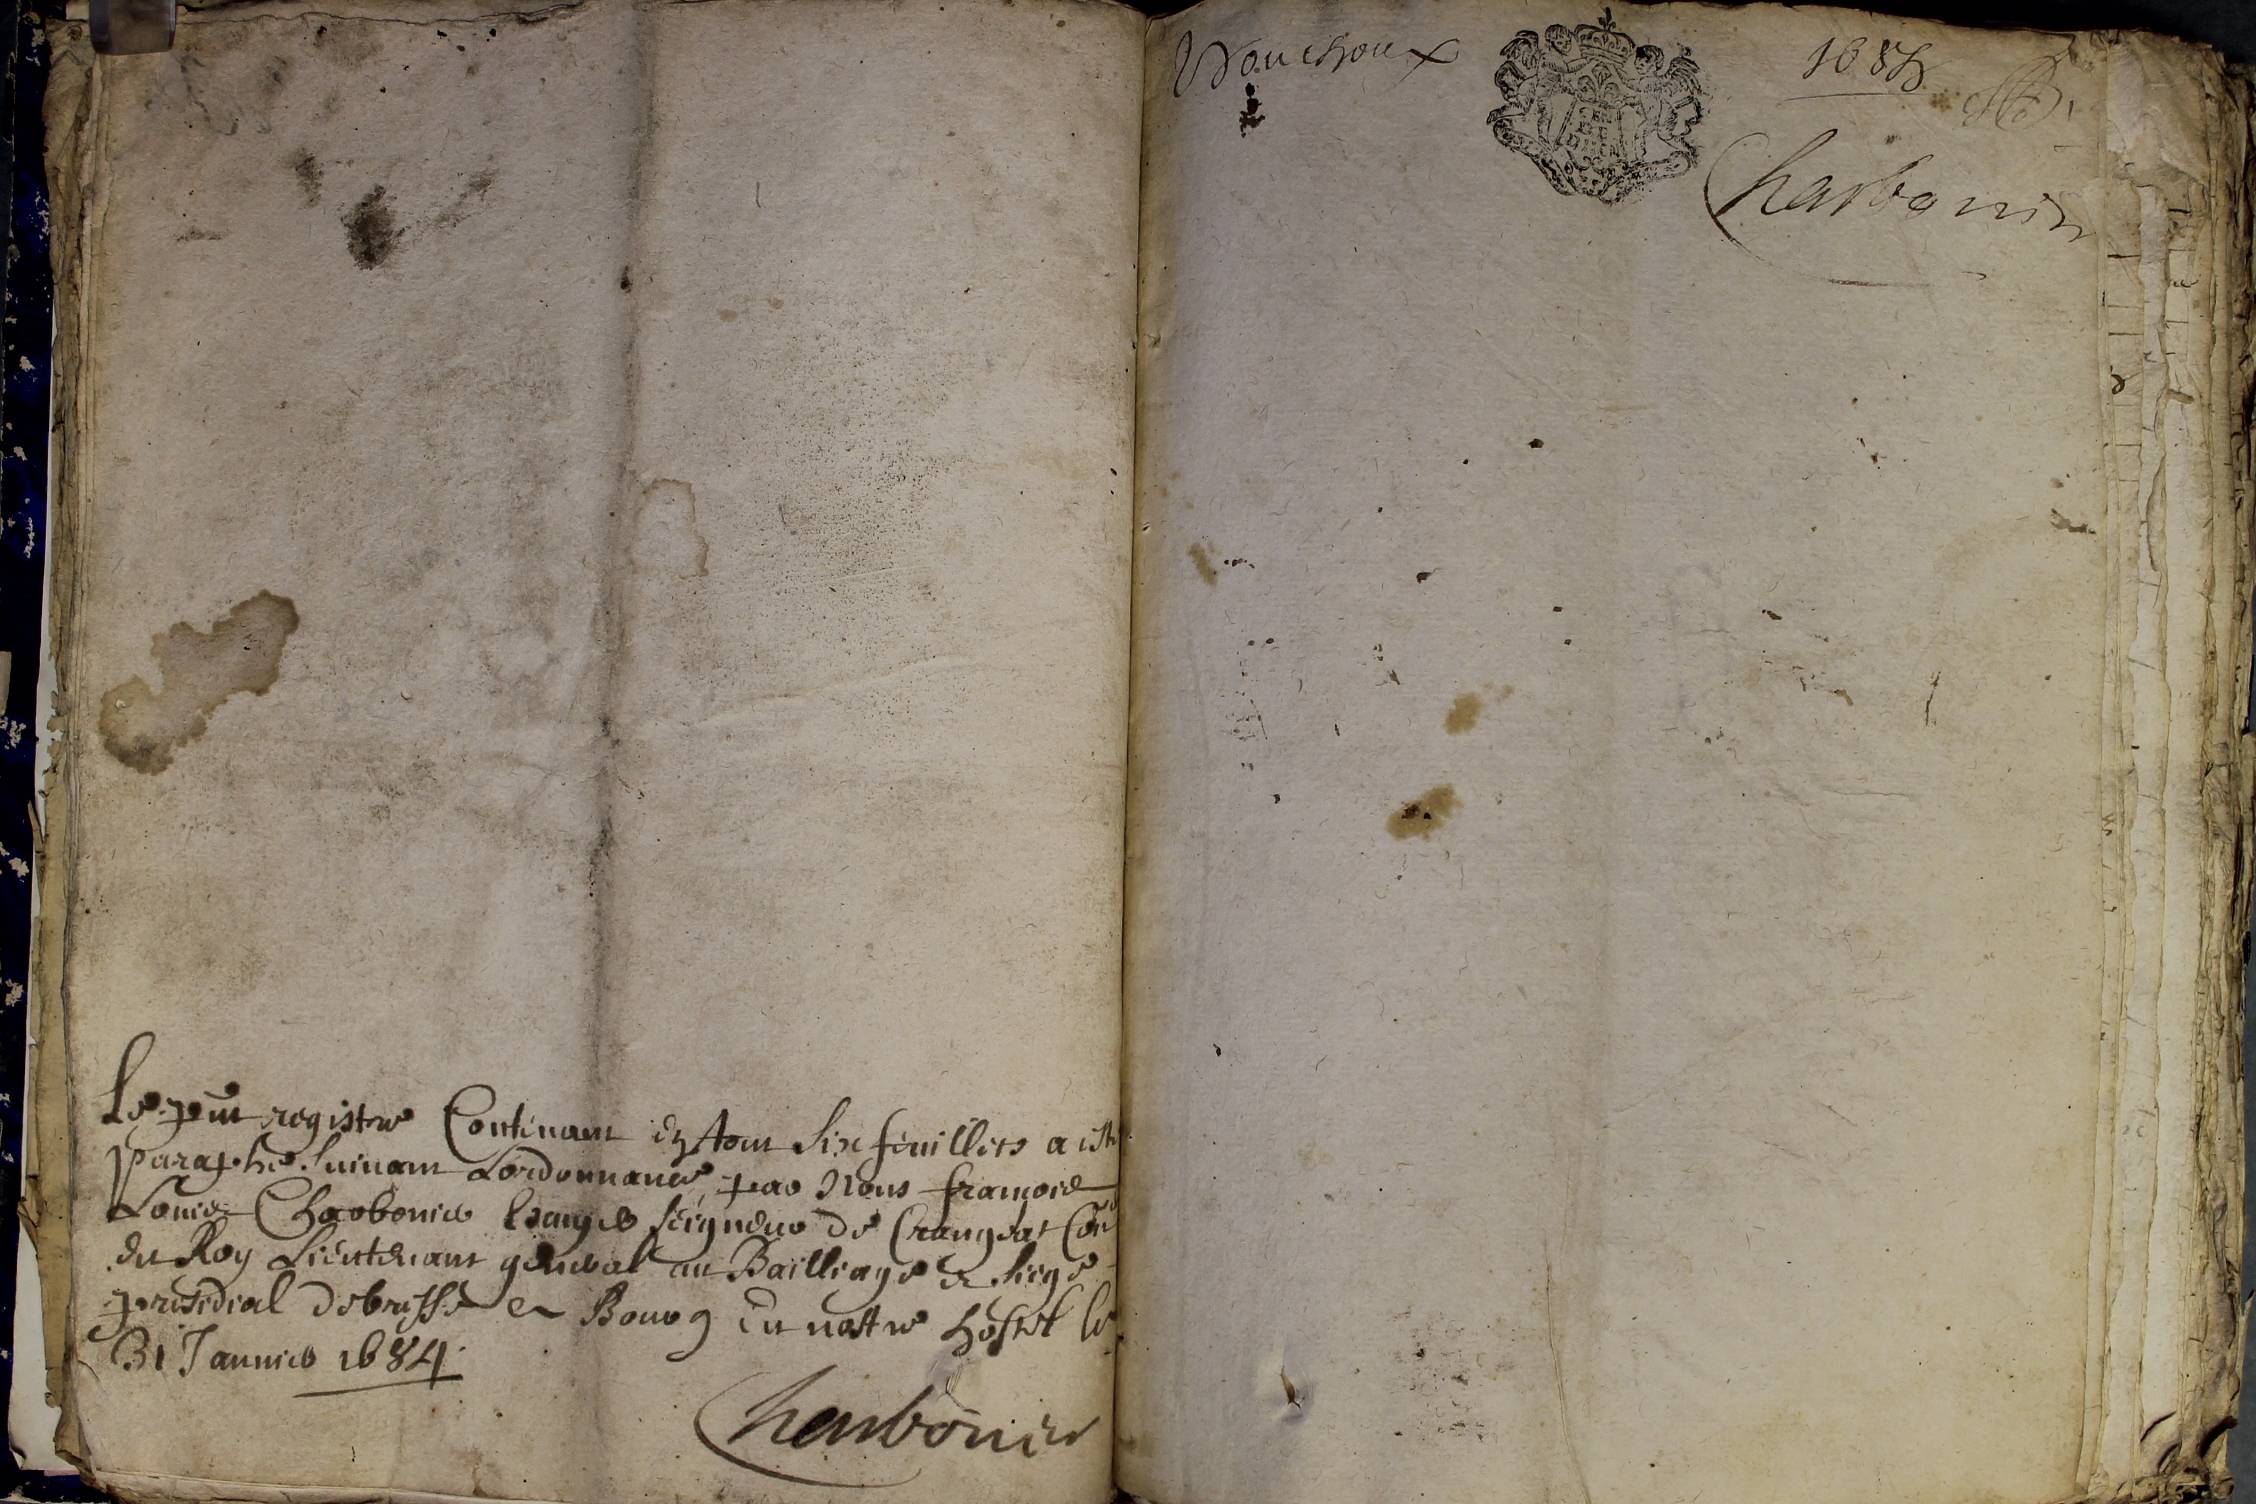 Le pnt registre Contenant en tout six feuillets a esté
paraphé suivant Lordonnance, par Nous francois
Louis Charbonier Seigneur de Crangeat Con
du Roy Lieutenant general au Bailliage & siege
presidial de bresse a Bourg En nostre hostel le
31 Janvier 1684.
Charbonier
1684
Charbonier